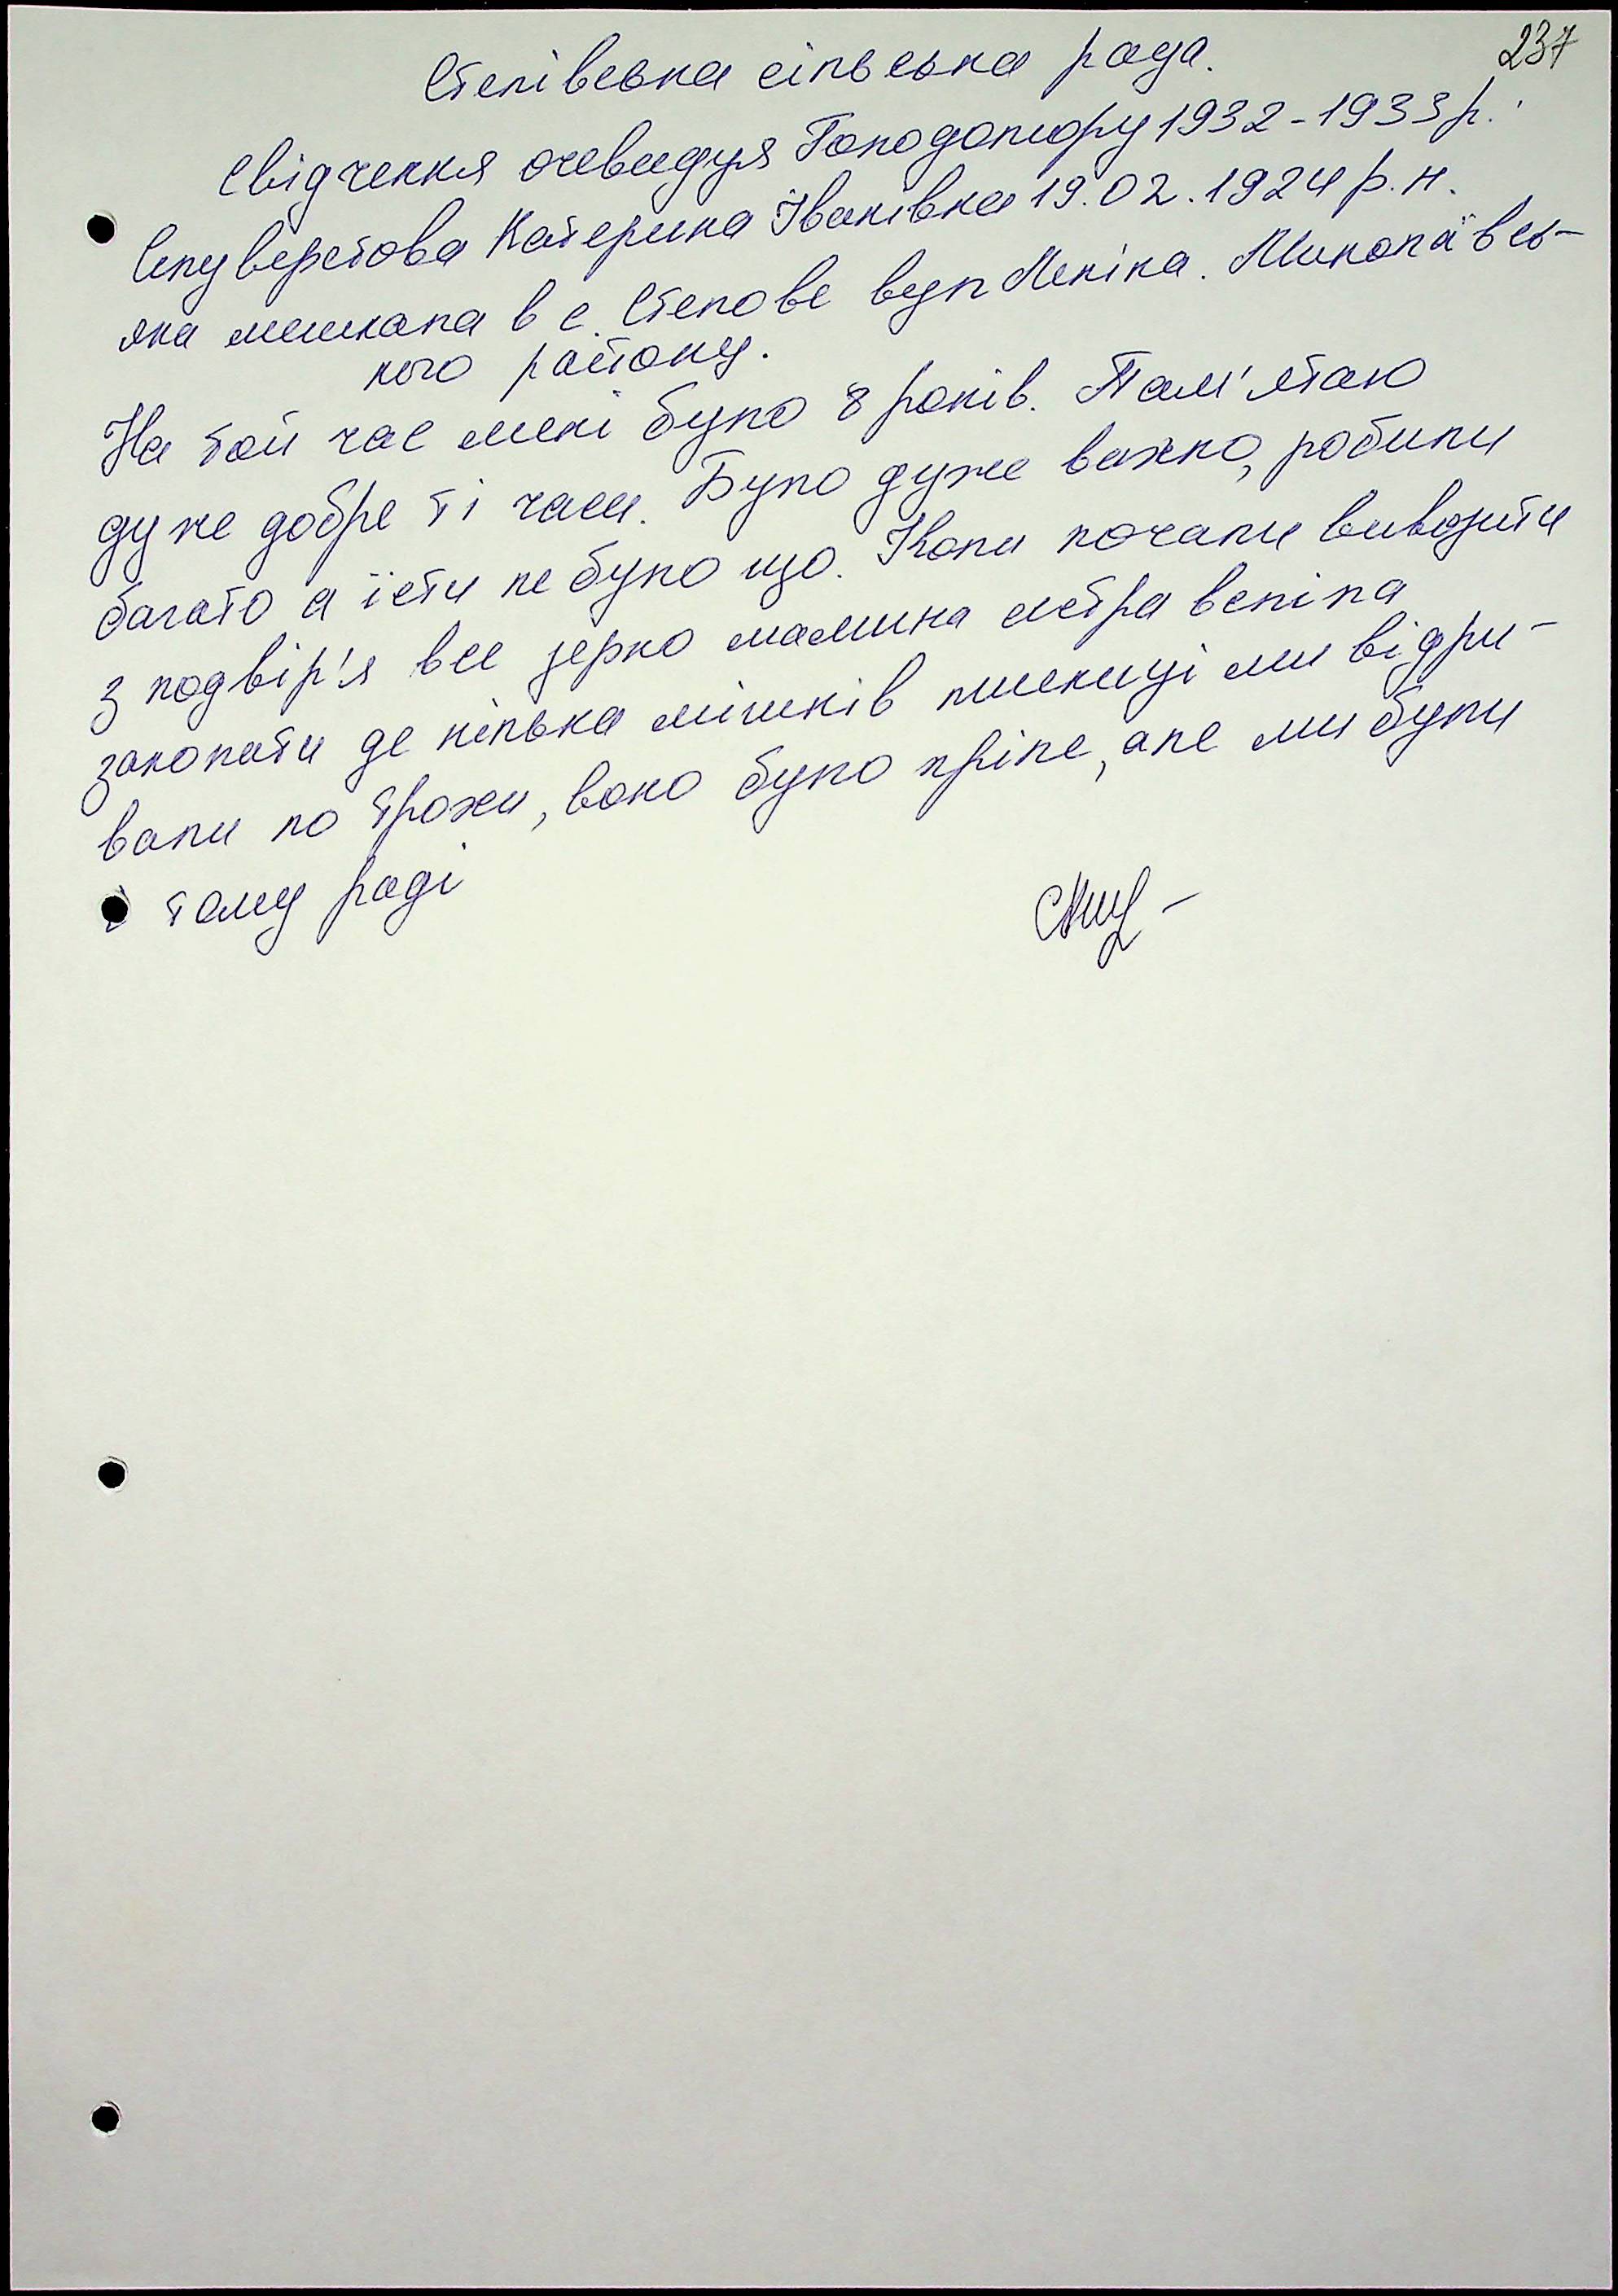 237
Степівська сільська рада.
Свідчення очевидця Голодомору 1932-1933 р.
Селуверстова Катерина Іванівна 19.02.1924 р.н.
яка мешкала в с. Степове вул Леніна. Миколаївсь-
кого району.
На той час мені було 8 років. Пам'ятаю
дуже добре ті часи. Було дуже важко, робили
багато а їсти не було що. Коли почали вивозити
з подвір'я все зерно мамина сестра веліла
закопати де кілька мішків пшениці ми відри-
вали по трохи, воно було пріле, але ми були
і тому раді